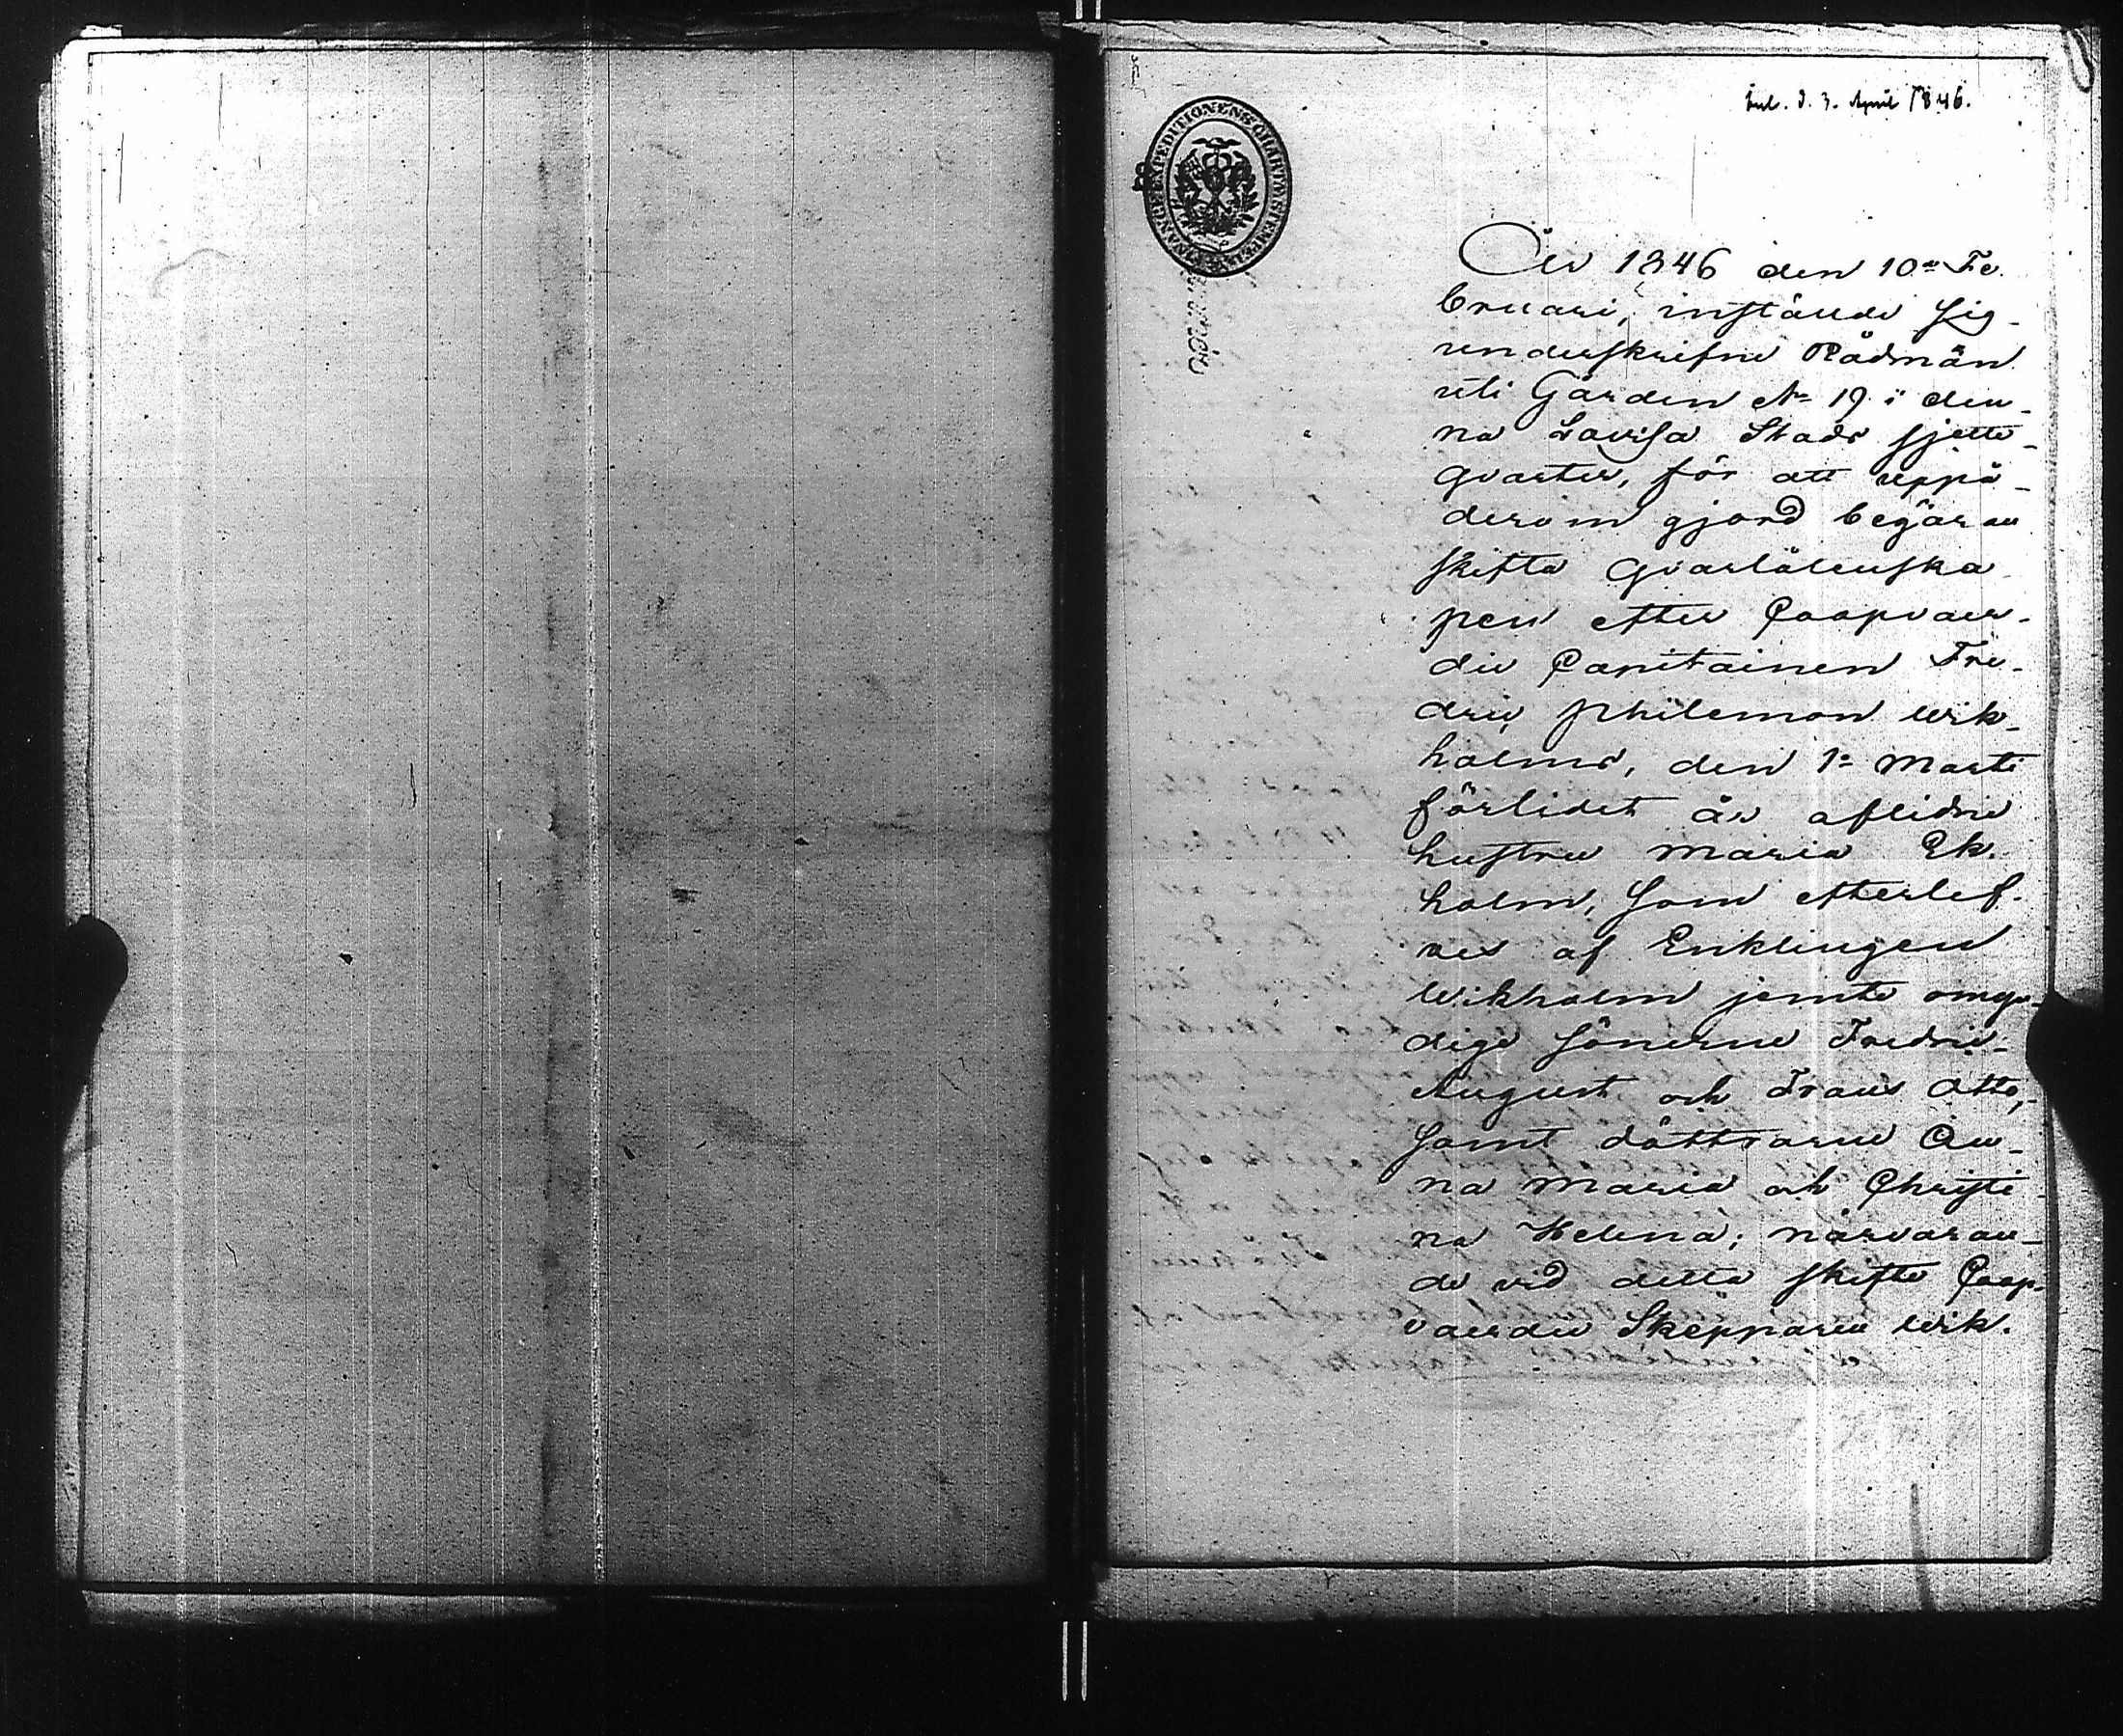 Inl. d. 3. April 1846.
FINANCE EXPEDITIONENS CHARTÆ STEMPEL
År 1846 den 10de Fe-
bruari, instälde sig
undertecknade Rådmän
uti Gården No 19 i den-
na Lovisa Stads sjette
Qvarter, för att uppå
derom gjord begäran
skifta Qvarlåtenska
pen efter Coopvaer-
die Capitainen Fre-
dric Philemon Wik-
holms, den 1e Marti
förlidet år aflidne
hustru Maria Ek-
holm, som efterlef-
ves af Enklingen
Wikholm jemte omyn-
dige Sönerne Fredric
August och Frans Otto,
samt döttrarne An-
na Maria och Christi-
na Helena; närvaran-
de vid detta skifte Coop-
vaerdie Skepparen Wik-